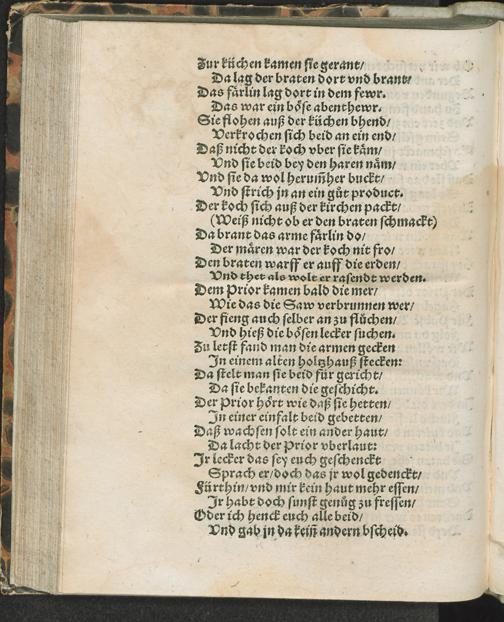 Zur küchen kamen sie gerant/
Da lag der braten dort vnd brant/
Das färlin lag dort in dem fewr.
Das war ein böse abenthewr.
Sie flohen auß der küchen bhend/
Verkrochen sich beid an ein end/
Daß nicht der koch vber sie käm/
Vnd sie beid bey den haren näm/
Vnd sie da wol herum̃her buckt/
Vnd strich jn an ein gůt product.
Der koch sich auß der kirchen packt/
(Weiß nicht ob er den braten schmackt)
Da brant das arme färlin do/
Der mären war der koch nit fro/
Den braten warff er auff die erden/
Vnd thet als wolt er rasendt werden.
Dem Prior kamen bald die mer/
Wie das die Saw verbrunnen wer/
Der fieng auch selber an zu flüchen/
Vnd hieß die bösen lecker suchen.
Zu letst fand man die armen gecken
In einem alten holtzhauß stecken:
Da stelt man sie beid für gericht/
Da sie bekanten die geschicht.
Der Prior hört wie daß sie hetten/
In einer einfalt beid gebetten/
Daß wachsen solt ein ander haut/
Da lacht der Prior vberlaut:
Jr lecker das sey euch geschenckt
Sprach er/doch das jr wol gedenckt/
Fürthin/vnd mir kein haut mehr essen/
Jr habt doch sunst genůg zu fressen/
Oder ich henck euch alle beid/
Vnd gab jn da kein̄ andern bscheid.